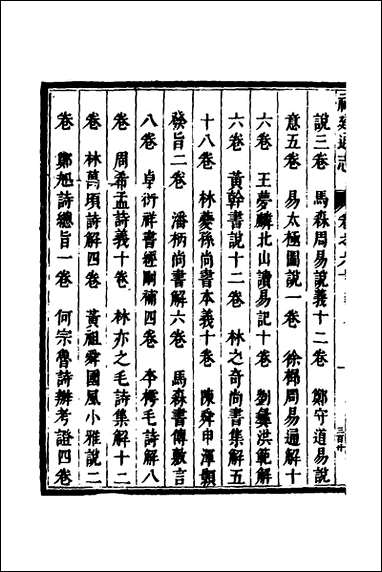 福建通志 卷之六十
說三卷 馬森周易說義十二卷 鄭守道易說
意五卷 易太極圖說一卷 徐楖周易通解十
六卷 王夢麟北山讀易記十卷 劉彝洪範解
六卷 黃幹書說十二卷 林之奇尚書集解五
十八卷 林夔孫尚書本義十卷 陳舜申渾顥
發旨二卷 潘柄尚書解六卷 馬森書傳敷言
八卷 卓衍祥書經剛補四卷 李樗毛詩解八
卷 周希孟詩義十卷 林亦之毛詩集解十二
卷 林萬頃詩解四卷 黃祖舜國風小雅說二
卷 鄭旭詩總旨一卷 何宗魯詩辦考證四卷